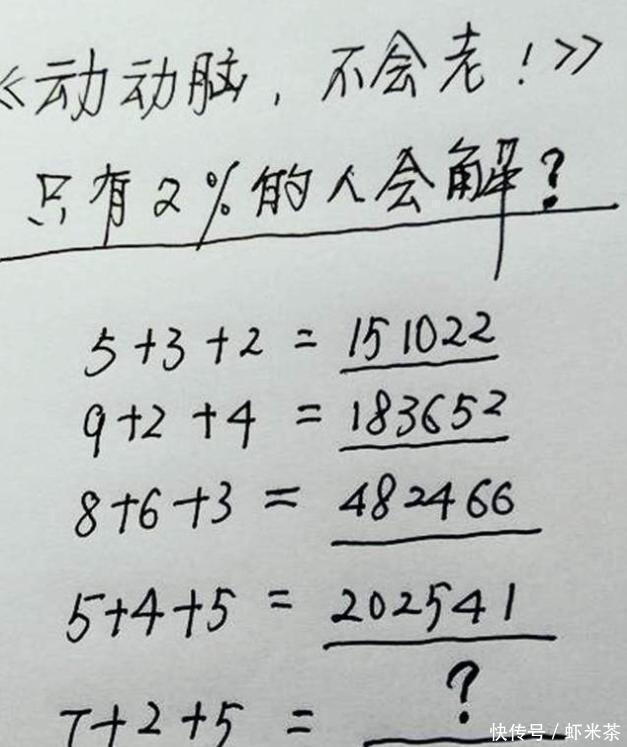 《动动脑，不会老！》
只有2%的人会解？
5+3+2 = 151022
9+2+4 = 183652
8+6+3 = 482466
5+4+5 = 202541
7+2+5 = ?
快传号／虾米茶